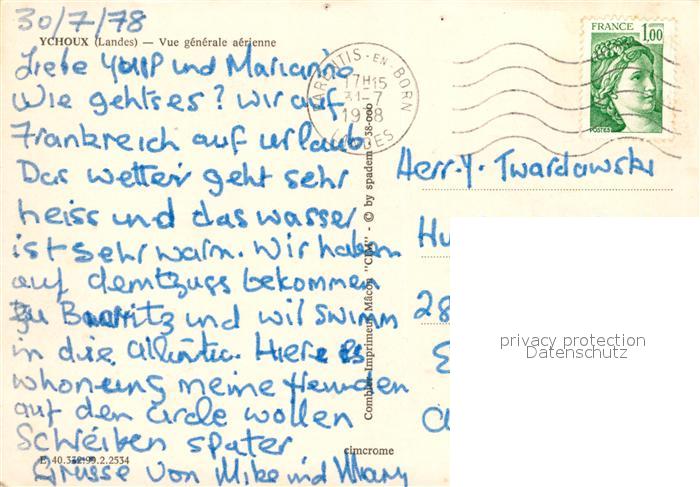 30/7/78
YCHOUX (Landes) — Vue générale aérienne
Liebe YOUP und Marianne
Wie gehts es? wir auf
Frankreich auf urlaub.
Das wetter geht sehr
heiss und das wasser
ist sehr warm. Wir haben
auf demtzugs bekommen
zu Biarritz und wil swimm
in die Atlantic. Hiere is
whoneung meine freunden
auf den circle wollen
Schreiben spater
Grusse von Mike und Mary
E 40.332.99.2.2534
cimcrome
Combier Imprimeur Mâcon "CIM" - © by spadem 38-000
PARENTIS-EN-BORN
17H15
31-7
1978
LANDES
FRANCE
1,00
POSTES
Herr. Y. Twardowski
Hu
28
privacy protection
Datenschutz